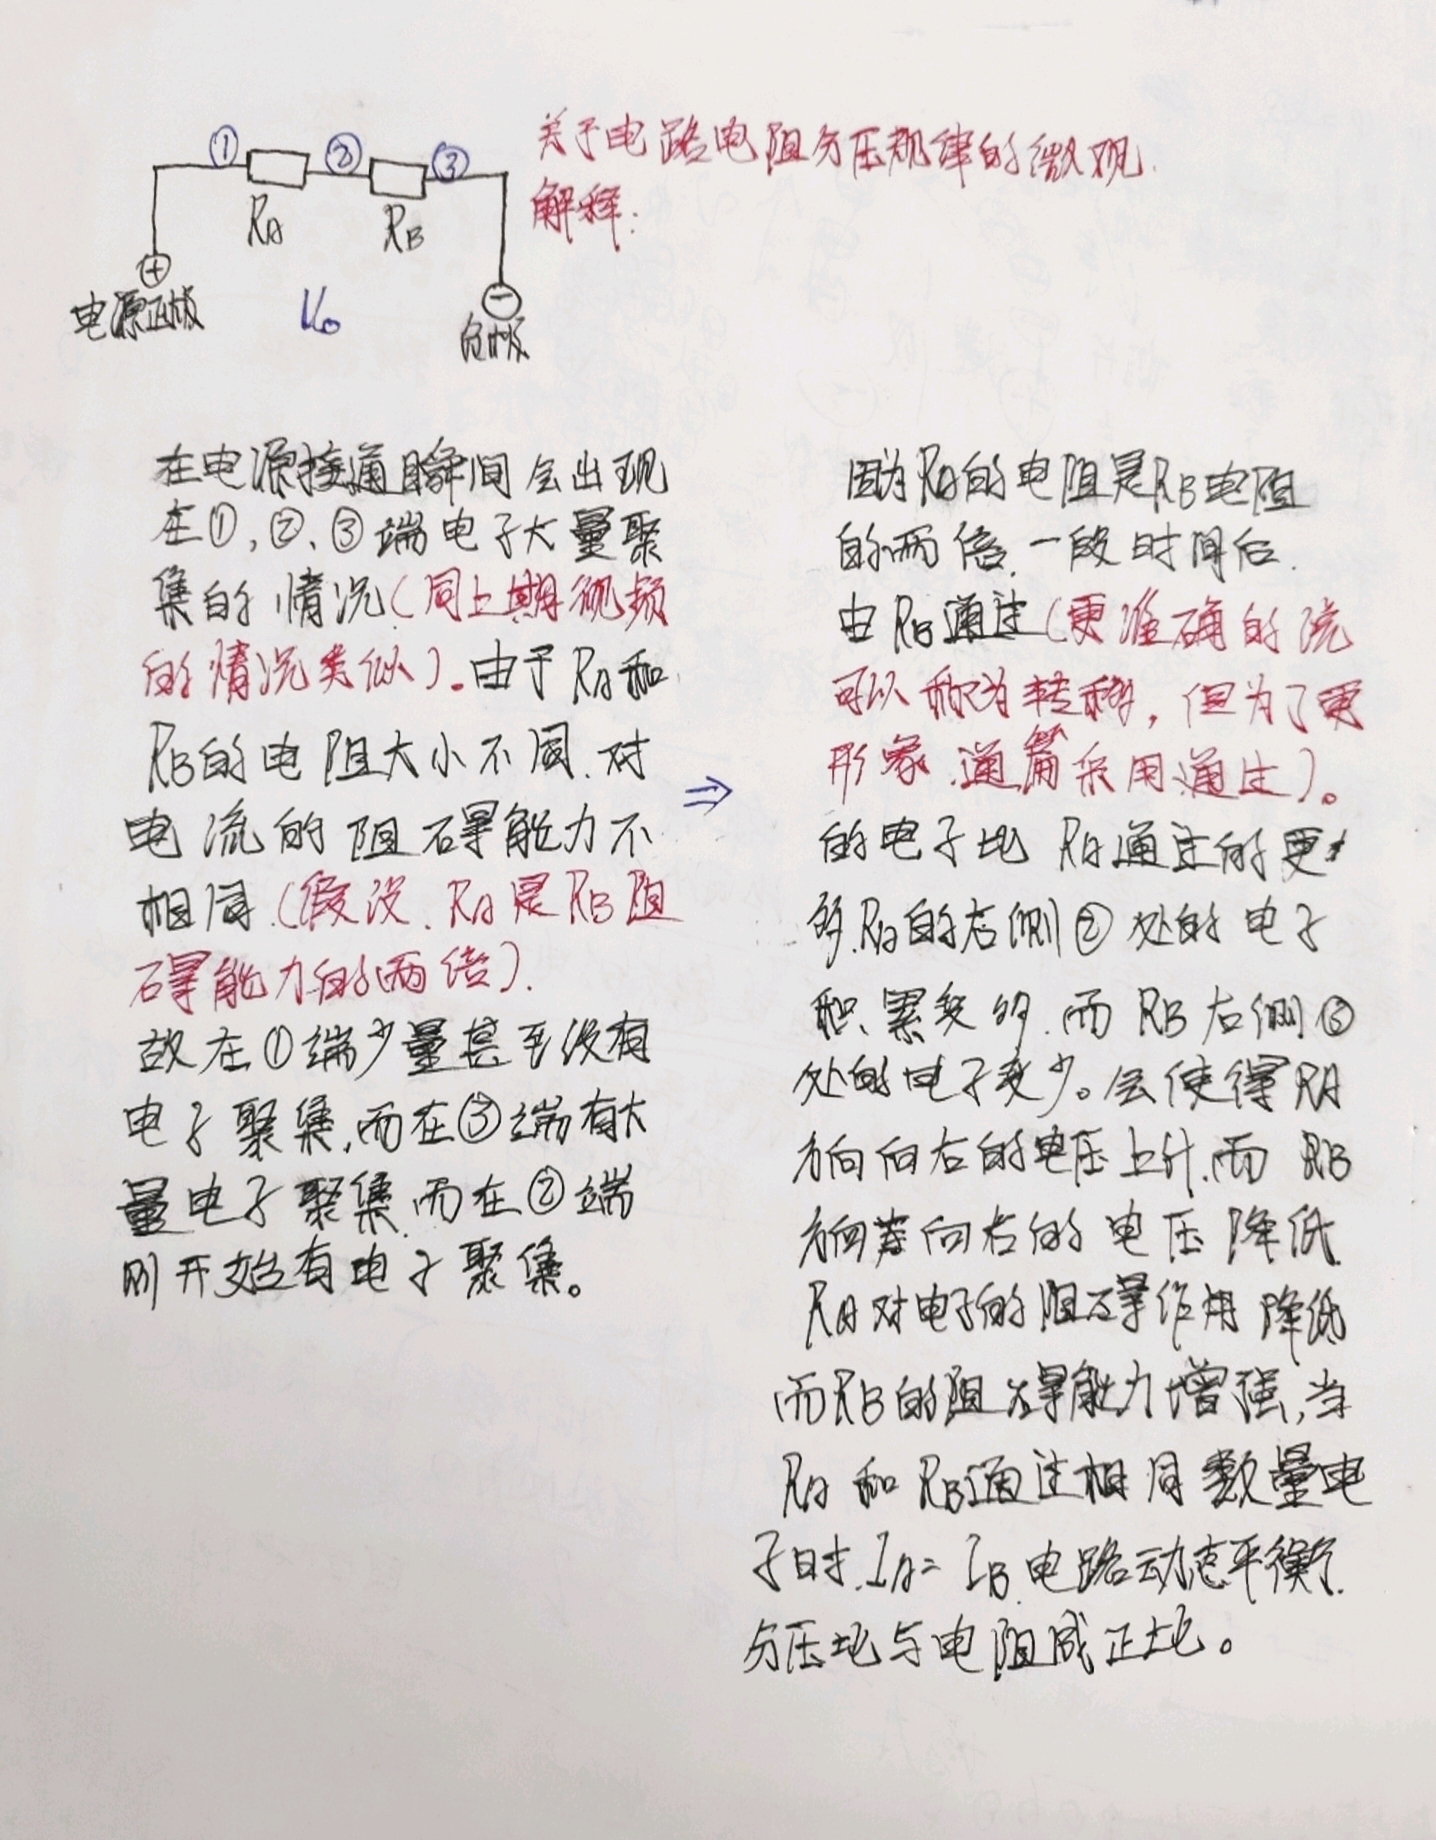 ① ② ③
RA RB
电源正极
U₀
负极
关于电路电阻分压规律的微观
解释:
在电源接通瞬间会出现
在①,②、③端电子大量聚
集的情况(同上期视频
的情况类似)。由于RA和
RB的电阻大小不同.对
电流的阻碍能力不
相同.(假设.RA是RB阻
碍能力的两倍).
故在①端少量甚至没有
电子聚集,而在③端有大
量电子聚集.而在②端
则开始有电子聚集。
⇒
因为RA的电阻是RB电阻
的两倍.一段时间后.
由RB通过(更准确的说
可以称为转移,但为了更
形象.通篇采用通过)。
的电子比RA通过的更
多.RA的右侧②处的电子
积累变多.而RB右侧③
处的电子变少。会使得RA
方向向右的电压上升.而RB
方向向右的电压降低.
RA对电子的阻碍作用降低
而RB的阻碍能力增强,当
RA和RB通过相同数量电
子时.IA=IB.电路动态平衡.
分压比与电阻成正比。